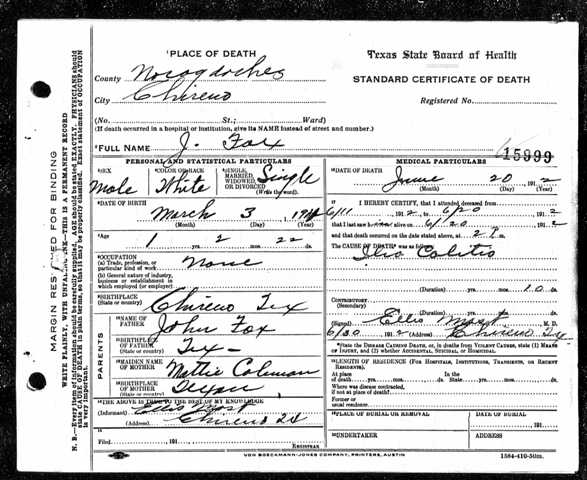 ¹PLACE OF DEATH
County Nocogdoches
City Chireno
(No. St.; Ward)
(If death occurred in a hospital or institution, give its NAME instead of street and number.)
²FULL NAME J. Fox
Texas State Board of Health
STANDARD CERTIFICATE OF DEATH
Registered No.
15999
PERSONAL AND STATISTICAL PARTICULARS
³SEX Male
⁴COLOR OR RACE White
⁵SINGLE, MARRIED, WIDOWED, OR DIVORCED (Write the word). Single
⁶DATE OF BIRTH
March 3, 191
(Month) (Day) (Year)
⁷AGE
1 yrs. 2 mos. 22 ds.
⁸OCCUPATION
(a) Trade, profession, or particular kind of work None
(b) General nature of industry, business or establishment in which employed (or employer)
⁹BIRTHPLACE
(State or country) Chireno Tex
PARENTS
¹⁰NAME OF FATHER John Fox
¹¹BIRTHPLACE OF FATHER
(State or country) Tex
¹²MAIDEN NAME OF MOTHER Mettie Coleman
¹³BIRTHPLACE OF MOTHER
(State or country)
¹⁴THE ABOVE IS TRUE TO THE BEST OF MY KNOWLEDGE
(Informant)
(Address) Chireno
Filed 191
REGISTRAR
MEDICAL PARTICULARS
DATE OF DEATH
June 20 1912
(Month) (Day) (Year)
I HEREBY CERTIFY, that I attended deceased from
6/11 1912 to 6/20 1912
that I saw alive on 6/20 1912
and that death occurred on the date stated above, at 2 m.
The CAUSE OF DEATH* was as follows:
Ilio Colitis
(Duration) yrs. mos. 10 ds.
CONTRIBUTORY
(Secondary)
(Duration) yrs. mos. ds.
(Signed) Ellis M. D.
6/30 1912 (Address) Chireno Tex
*State the DISEASE CAUSING DEATH, or, in deaths from VIOLENT CAUSES, state (1) MEANS OF INJURY, and (2) whether ACCIDENTAL, SUICIDAL, or HOMICIDAL.
LENGTH OF RESIDENCE (FOR HOSPITALS, INSTITUTIONS, TRANSIENTS, OR RECENT RESIDENTS).
At place of death yrs. mos. ds. In the State yrs. mos. ds.
Where was disease contracted, if not at place of death?
Former or usual residence
PLACE OF BURIAL OR REMOVAL
DATE OF BURIAL
191
UNDERTAKER
ADDRESS
VON BOECKMANN-JONES COMPANY, PRINTERS, AUSTIN
1584-410-50m.
MARGIN RESERVED FOR BINDING
WRITE PLAINLY, WITH UNFADING INK—THIS IS A PERMANENT RECORD
N. B.—Every item of information should be carefully supplied. AGE should be stated EXACTLY. PHYSICIANS should state CAUSE OF DEATH in plain terms, so that it may be properly classified. Exact statement of OCCUPATION is very important.